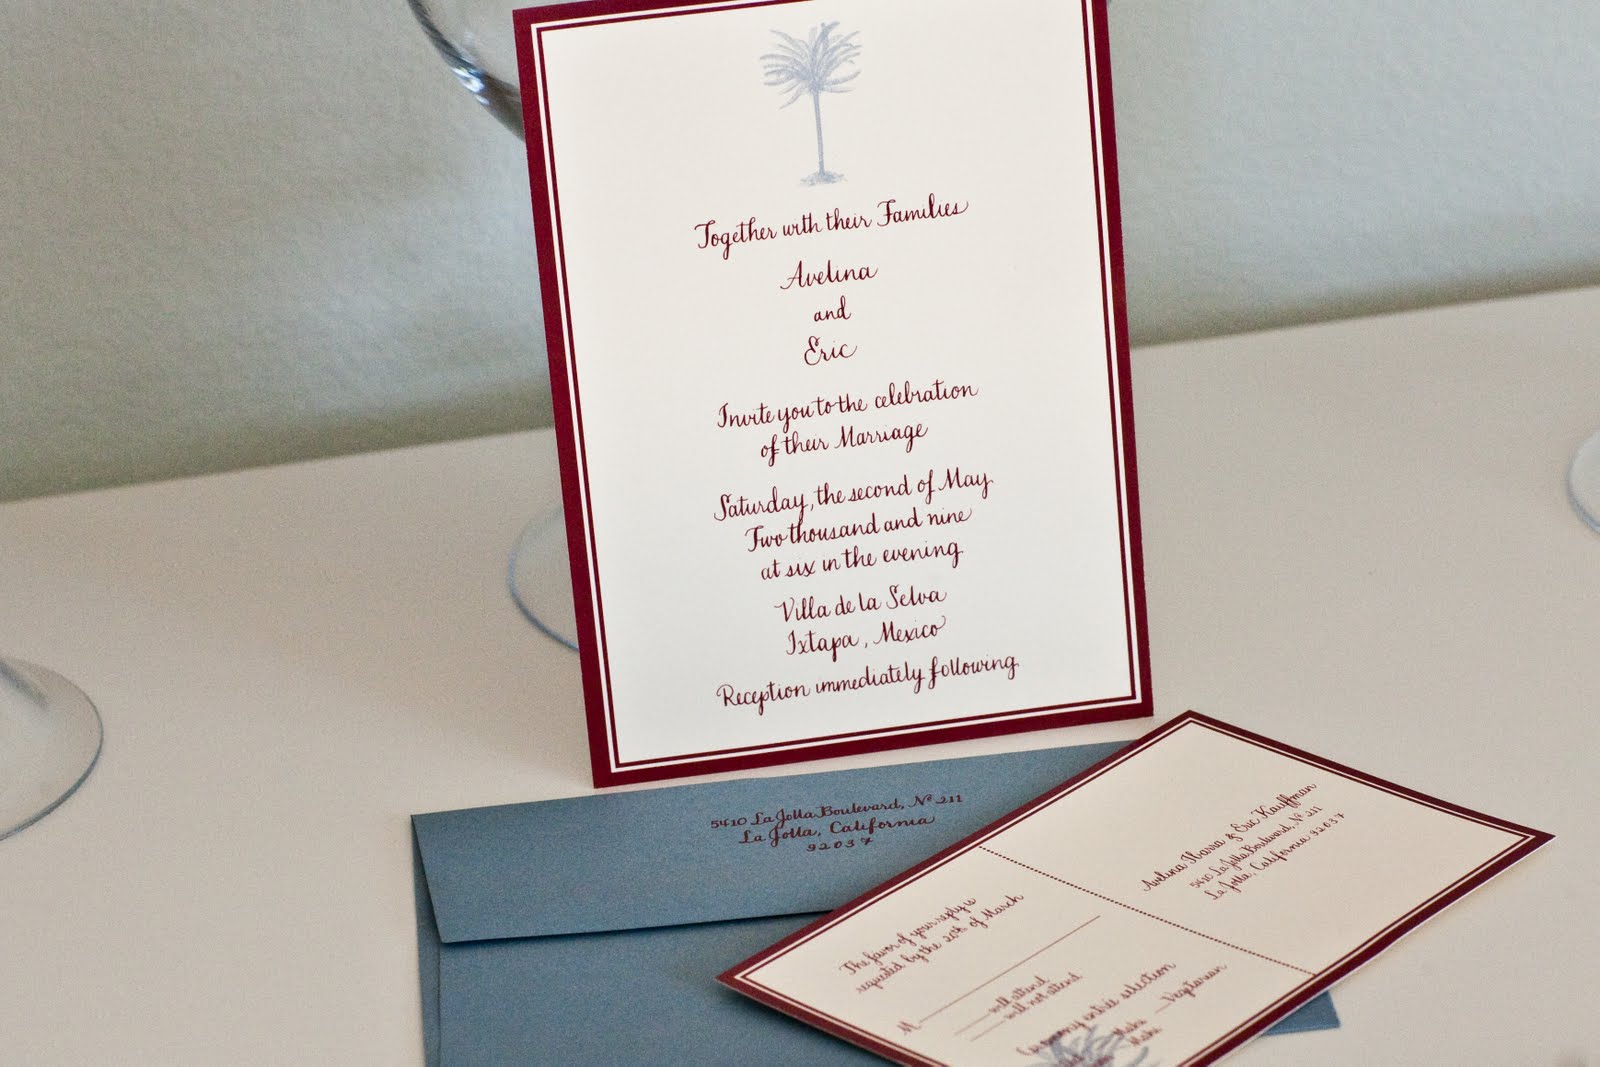 Together with their Families
Avelina
and
Eric
Invite you to the celebration
of their Marriage
Saturday, the second of May
Two thousand and nine
at six in the evening
Villa de la Selva
Ixtapa, Mexico
Reception immediately following
5410 La Jolla Boulevard, Nº 211
La Jolla, California
92037
Avelina Ibarra & Eric Kauffman
5410 La Jolla Boulevard, Nº 211
La Jolla, California 92037
The favor of your reply is
requested by the 20th of March
M
will attend
will not attend
entrée selection
Vegetarian